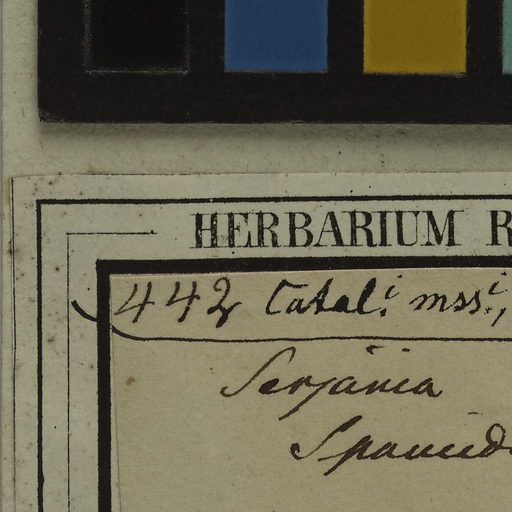 HERBARIUM R
442 Catal.i mss.i,
Serjania